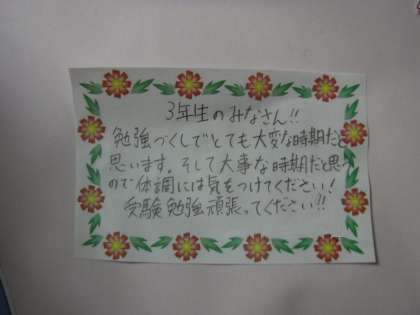 3年生のみなさん!!
勉強づくしでとても大変な時期だと
思います。そして大事な時期だと思う
ので体調には気をつけてください!
受験勉強頑張ってください!!